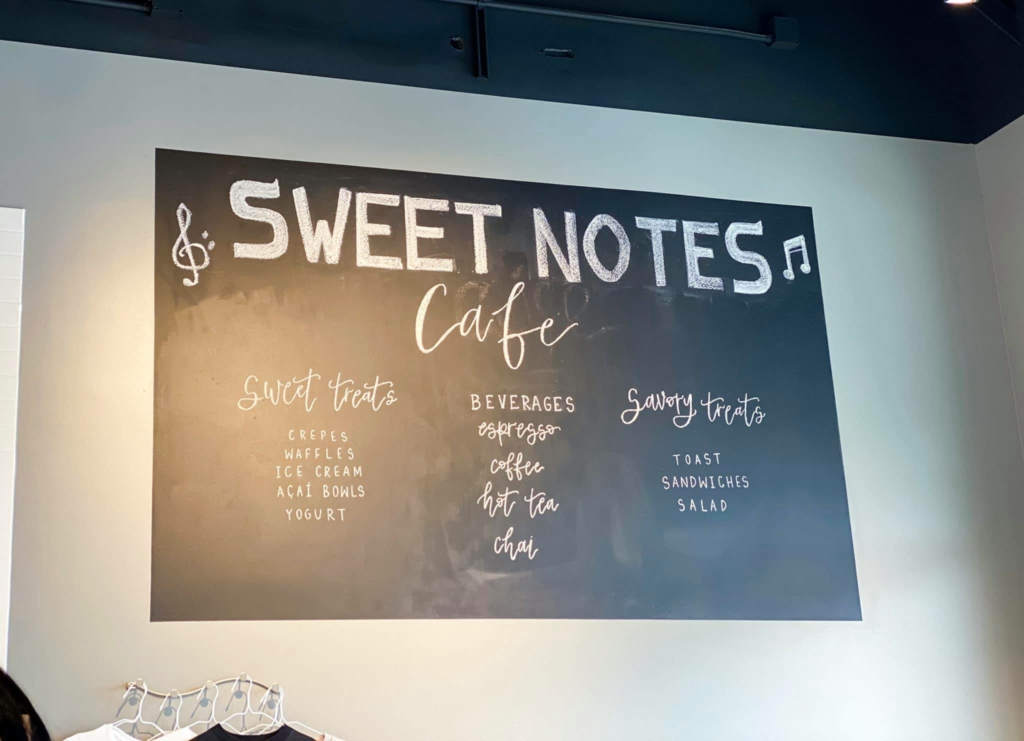 SWEET NOTES
Cafe
Sweet treats
CREPES
WAFFLES
ICE CREAM
AÇAÍ BOWLS
YOGURT
BEVERAGES
espresso
coffee
hot tea
chai
Savory treats
TOAST
SANDWICHES
SALAD